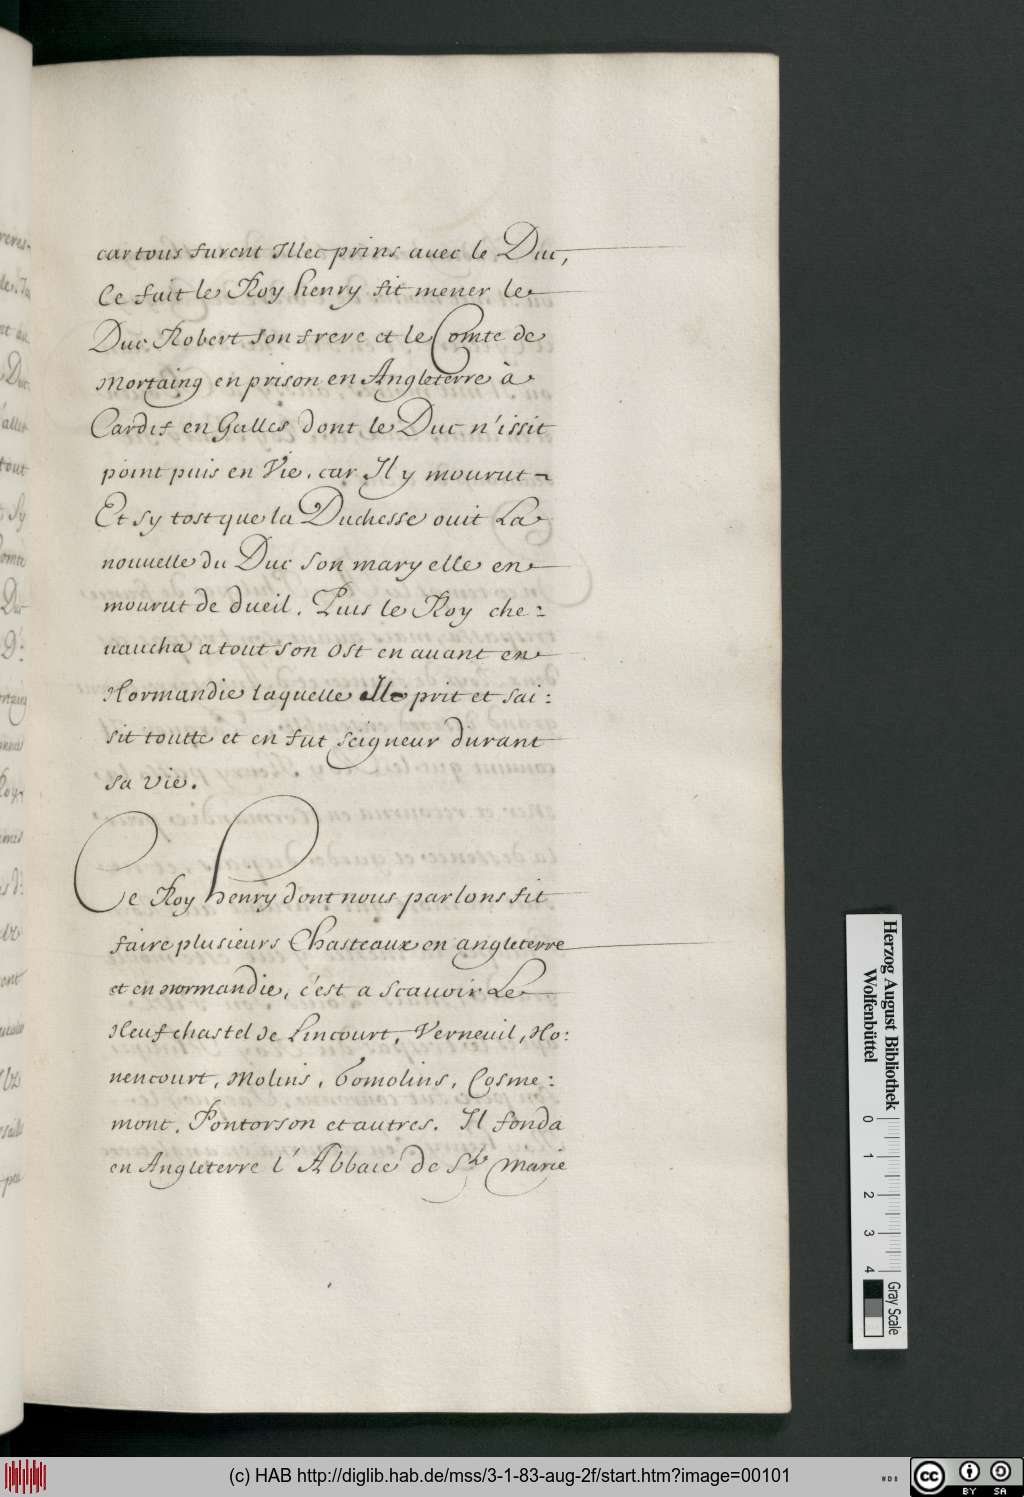 car tous furent Illec prins auec le Duc,
Ce fait le Roy henry fit mener le
Duc Robert son frere et le Comte de
Mortaing en prison en Angleterre à
Cardif en Galles dont le Duc n'issit
point puis en Vie, car Il y mourut
Et sy tost que la Duchesse ouit La
nouuelle du Duc son mary elle en
mourut de dueil. Puis le Roy che:
uaucha a tout son Ost en auant en
Normandie laquelle Il prit et sai:
sit toutte et en fut seigneur durant
sa vie.
Ce Roy henry dont nous parlons fit
faire plusieurs Chasteaux en angleterre
et en normandie, c'est a scauoir Le
Neufchastel de Lincourt, Verneuil, No:
nencourt, Molins, Comolins, Cosme:
mont, Pontorson et autres. Il fonda
en Angleterre l'Abbaie de Ste Marie
Herzog August Bibliothek
Wolfenbüttel
0 1 2 3 4
Gray Scale
(c) HAB http://diglib.hab.de/mss/3-1-83-aug-2f/start.htm?image=00101
cc BY SA